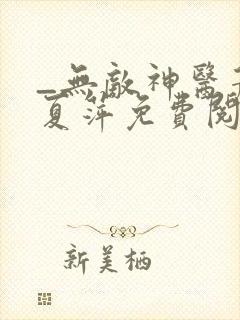 _無敵神醫
夏萍免費閱
新美栖